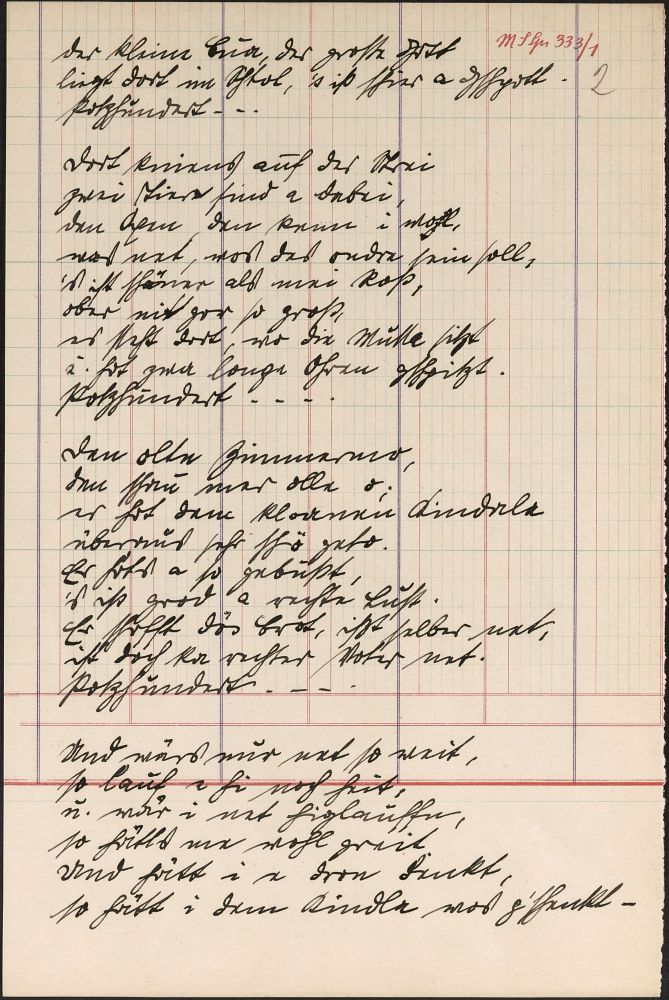 MS Gu 333/1
2
der kleine Bua, der große Gott
liegt dort im Schtol, 's ist schier a Gschpott.
Potzhundert - - -
Dort kniens auf der Strei
zwei Tiere sind a dabei,
den Oxen, den kenn i wohl,
was net, wos des ondre sein soll,
's ist schöner als mei Roß,
ober nit gor so groß,
es steht dort, wo die Mutta sitzt
u. hot zwa longe Ohren gspitzt.
Potzhundert - - - -
Den olte Zimmermo,
den schau mer olle o;
er hot dem kloanen Kindale
überaus sehr schö geto.
Er hots a so gebußt,
's ist grod a rechte Lust.
Er schofft dös Brot, ißt selber net,
ist doch ka rechter Voter net.
Potzhundert - - - -
Und wärs nur net so weit,
so lauf e hi noch heit,
u. wär i net higlauffn,
so hätts me wohl greit
Und hätt i e dron denkt,
so hätt i dem Kindla wos g'schenkt -